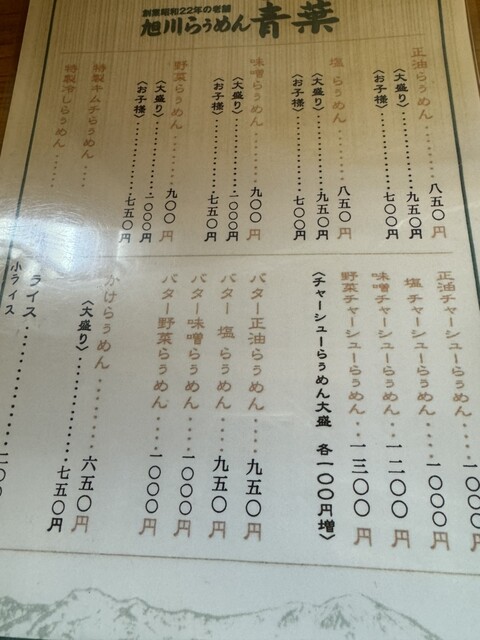 創業昭和22年の老舗
旭川らぅめん青葉
正油らぅめん………八五〇円
〈大盛り〉…………九五〇円
〈お子様〉…………七〇〇円
塩らぅめん…………八五〇円
〈大盛り〉…………九五〇円
〈お子様〉…………七〇〇円
味噌らぅめん………九〇〇円
〈大盛り〉…………一〇〇〇円
〈お子様〉…………七五〇円
野菜らぅめん………九〇〇円
〈大盛り〉…………一〇〇〇円
〈お子様〉…………七五〇円
特製キムチらぅめん……
特製冷しらぅめん……
正油チャーシューらぅめん…一〇〇〇円
塩チャーシューらぅめん…一〇〇〇円
味噌チャーシューらぅめん…一二〇〇円
野菜チャーシューらぅめん…一三〇〇円
〈チャーシューらぅめん大盛 各一〇〇円増〉
バター正油らぅめん……九五〇円
バター塩らぅめん……九五〇円
バター味噌らぅめん……一〇〇〇円
バター野菜らぅめん……一〇〇〇円
かけらぅめん…………六五〇円
〈大盛り〉……………七五〇円
ライス……………二〇〇
小ライス